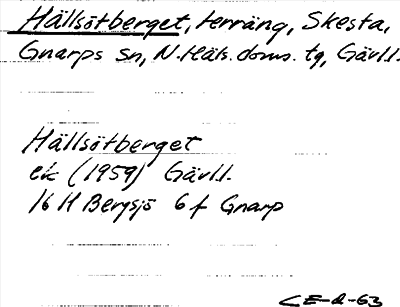 Hällsötberget, terräng, Skesta,
Gnarps sn, N. Häls. doms. tg, Gävl.l.
Hällsötberget
ek (1959) Gävl.l.
16 H Bergsjö 6 f Gnarp
CE-d-63